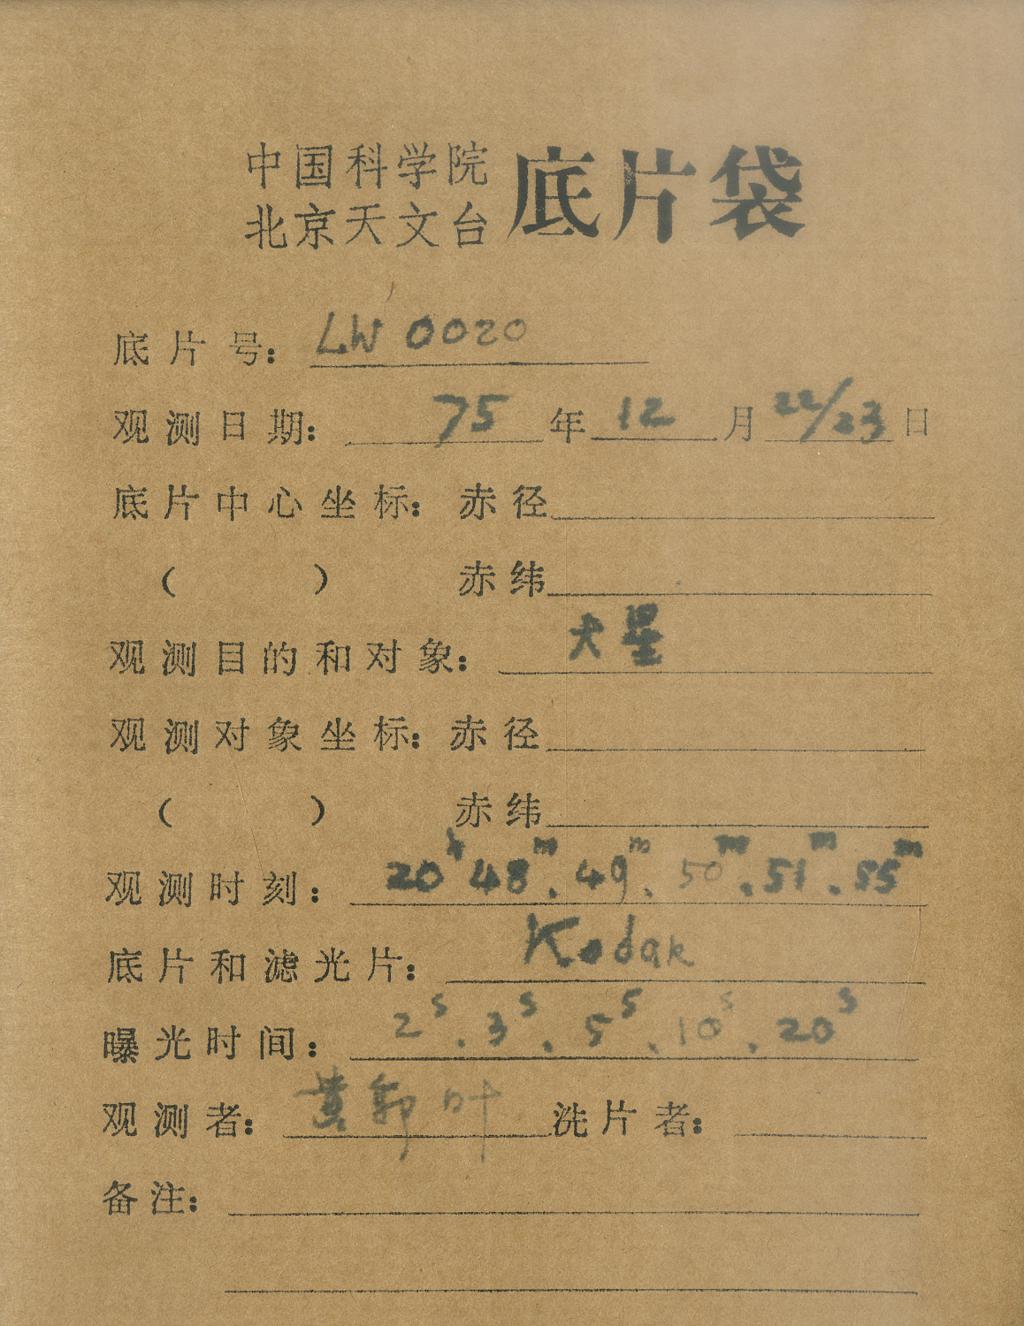 中国科学院
北京天文台
底片袋
底片号：LW 0020
观测日期：75年12月22/23日
底片中心坐标：赤径
（ ）赤纬
观测目的和对象：犬星
观测对象坐标：赤径
（ ）赤纬
观测时刻：20h48m.49m.50m.51m.55m
底片和滤光片：Kodak
曝光时间：2s.3s.5s.10s.20s
观测者：黄郭叶 洗片者：
备注：